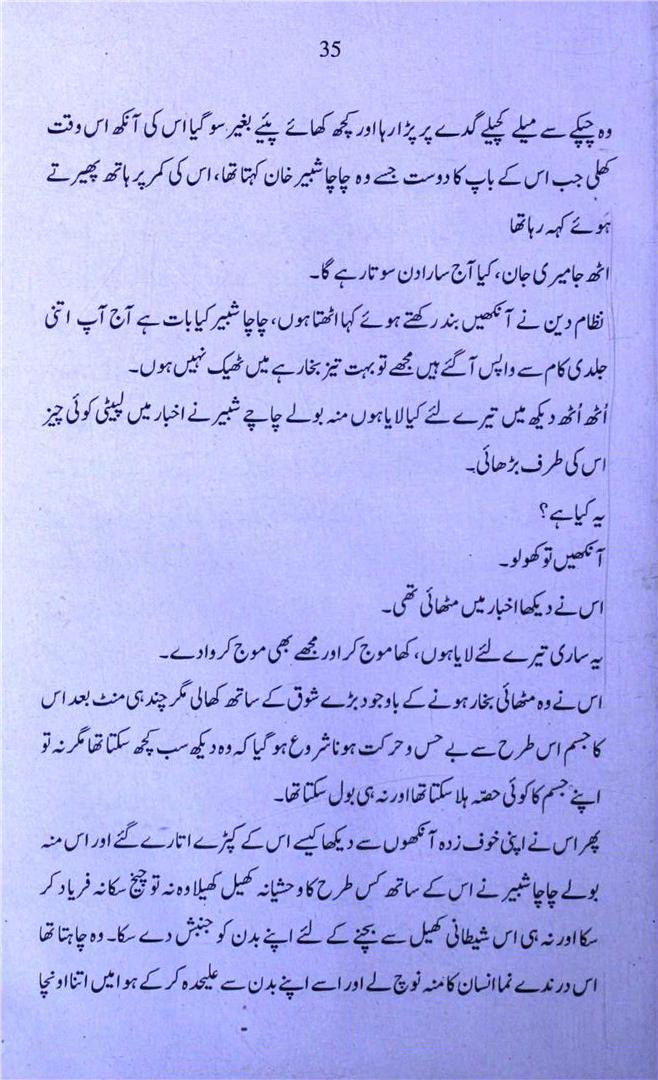 35
وہ چپکے سے میلے کچیلے گدے پر پڑا رہا اور کچھ کھائے پئیے بغیر سو گیا اس کی آنکھ اس وقت
کھلی جب اس کے باپ کا دوست جسے وہ چاچا شبیر خان کہتا تھا، اس کی کمر پر ہاتھ پھیرتے
ہوئے کہہ رہا تھا
اٹھ جا میری جان، کیا آج سارا دن سوتا رہے گا۔
نظام دین نے آنکھیں بند رکھتے ہوئے کہا اٹھتا ہوں، چاچا شبیر کیا بات ہے آج آپ اتنی
جلدی کام سے واپس آ گئے ہیں مجھے تو بہت تیز بخار ہے میں ٹھیک نہیں ہوں۔
اُٹھ اُٹھ دیکھ میں تیرے لئے کیا لایا ہوں منہ بولے چاچے شبیر نے اخبار میں لپیٹی کوئی چیز
اس کی طرف بڑھائی۔
یہ کیا ہے؟
آنکھیں تو کھولو۔
اس نے دیکھا اخبار میں مٹھائی تھی۔
یہ ساری تیرے لئے لایا ہوں، کھا موج کر اور مجھے بھی موج کروا دے۔
اس نے وہ مٹھائی بخار ہونے کے باوجود بڑے شوق کے ساتھ کھا لی مگر چند ہی منٹ بعد اس
کا جسم اس طرح سے بے حس و حرکت ہونا شروع ہو گیا کہ وہ دیکھ سب کچھ سکتا تھا مگر نہ تو
اپنے جسم کا کوئی حصّہ ہلا سکتا تھا اور نہ ہی بول سکتا تھا۔
پھر اس نے اپنی خوف زدہ آنکھوں سے دیکھا کیسے اس کے کپڑے اتارے گئے اور اس منہ
بولے چاچا شبیر نے اس کے ساتھ کس طرح کا وحشیانہ کھیل کھیلا وہ نہ تو چیخ سکا نہ فریاد کر
سکا اور نہ ہی اس شیطانی کھیل سے بچنے کے لئے اپنے بدن کو جنبش دے سکا۔ وہ چاہتا تھا
اس درندے نما انسان کا منہ نوچ لے اور اسے اپنے بدن سے علیحدہ کر کے ہوا میں اتنا اونچا